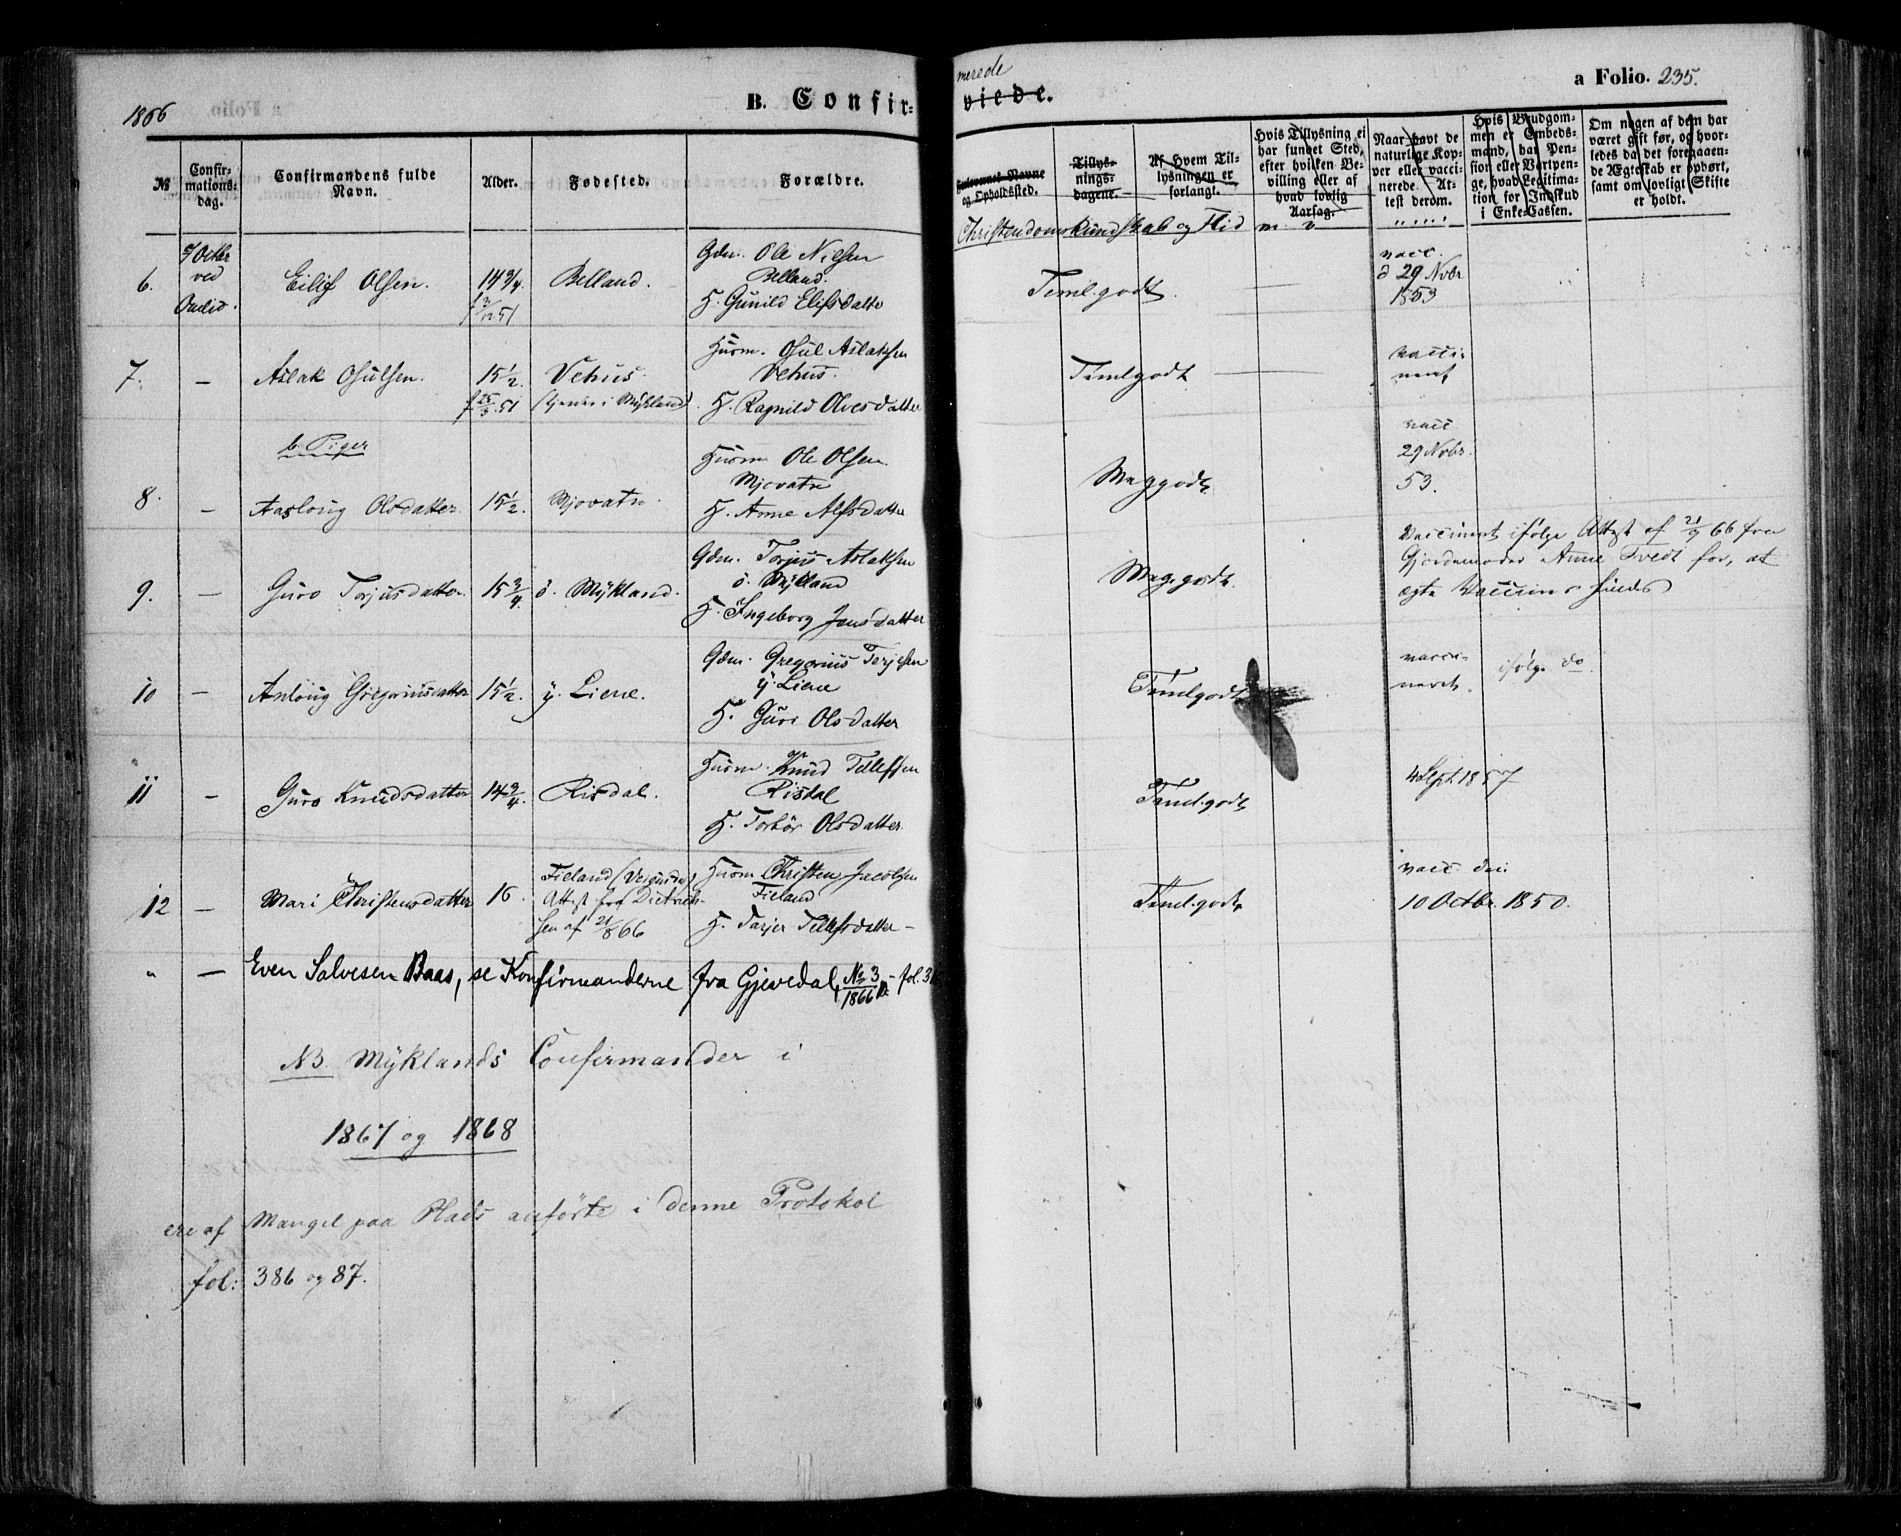 1866
B. Confir-
merede
viede.
a Folio. 235.
№
Confir-
mations-
dag.
Confirmandens fulde
Navn.
Alder.
Fødested.
Forældre.
og Opholdssted.
Tillys-
nings-
dagene.
Af Hvem Til-
lysningen er
forlangt.
Hvis Tillysning ei
har fundet Sted,
efter hvilken Be-
villing eller af
hvad lovlig
Aarsag.
Naar havt de
naturlige Kop-
per eller vacci-
nerede. At-
test derom.
Hvis Brudgom-
men er Embeds-
mand, har Pen-
sion eller Vartpen-
ge, hvad Legitima-
tion for Indskud
i Enke-Cassen.
Om nogen af dem har
været gift før, og hvor-
ledes da det foregaaen-
de Ægteskab er ophørt,
samt om lovligt Skifte
er holdt.
Christendomskundskab og Flid m. v
6.
7 Octbr
ved
Eilif Olsen.
14 3/4
Belland.
Gdm. Ole Nilsen
Belland.
H. Gunild Elifsdatter
Teml. godt.
vacc.
d 29 Novbr
1853
7.
—
Aslak Osulsen.
15 1/2.
f 25/3 51
Vehus.
(tjener i Mykland)
Husm. Osul Aslaksen
Vehus.
H. Ragnild Olvesdatter
Temlgodt
vacci-
neret
b. Piger
8.
—
Aasloug Olsdatter.
15 1/2.
Mjovatn.
Husm Ole Olsen
Mjovatn
H. Anne Alfsdatter
Meg godt.
vacc
29 Novbr.
53.
9.
—
Guro Torjusdatter.
15 3/4.
ö. Mykland.
Gdm. Torjus Aslaksen
ö. Mykland
H. Ingeborg Jensdatter
Meg. godt.
Vaccineret ifølge Attest af 21/9 66 fra
Gjordemoder Anne Tvedt for, at
ægte Vaccine findes
10
—
Anloug Gregoriusdatter
15 1/2.
y. Liene.
Gdm. Gregorius Terjesen
y. Liene
H. Guri Olsdatter
Temlgodt
vacci-
neret.
ifølge do
11
—
Guro Knudsdatter
14 3/4.
Risdal.
Husm. Knud Tellefsen
Risdal
H. Torbör Olsdatter.
Teml. godt
4 Sept. 1857
12
—
Mari Christensdatter
16.
Fieland
Attest fra Dietrich-
sen af 21/8 66
Husm Christen Jacobsen
Fieland
H. Tarjer Tellefsdatter—
Teml. godt
vacc. den
10 Octbr. 1850.
" — Even Salvesen Baas, se Konfirmanderne fra Gjevedal, № 3/1866 — fol. 3
NB. Myklands Confirmander i
1867 og 1868
ere af Mangel paa Plads anførte i denne Protokol
fol: 386 og 87.